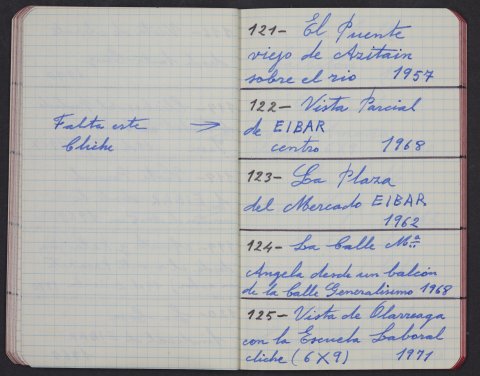 Falta este →
Cliche
121- El Puente
viejo de Azitain
sobre el rio 1957
122- Vista Parcial
de EIBAR
centro 1968
123- La Plaza
del Mercado EIBAR
1962
124- La Calle Mª
Angela desde un balcón
de la Calle Generalisimo 1968
125- Vista de Olarreaga
con la Escuela Laboral
cliche (6X9) 1971